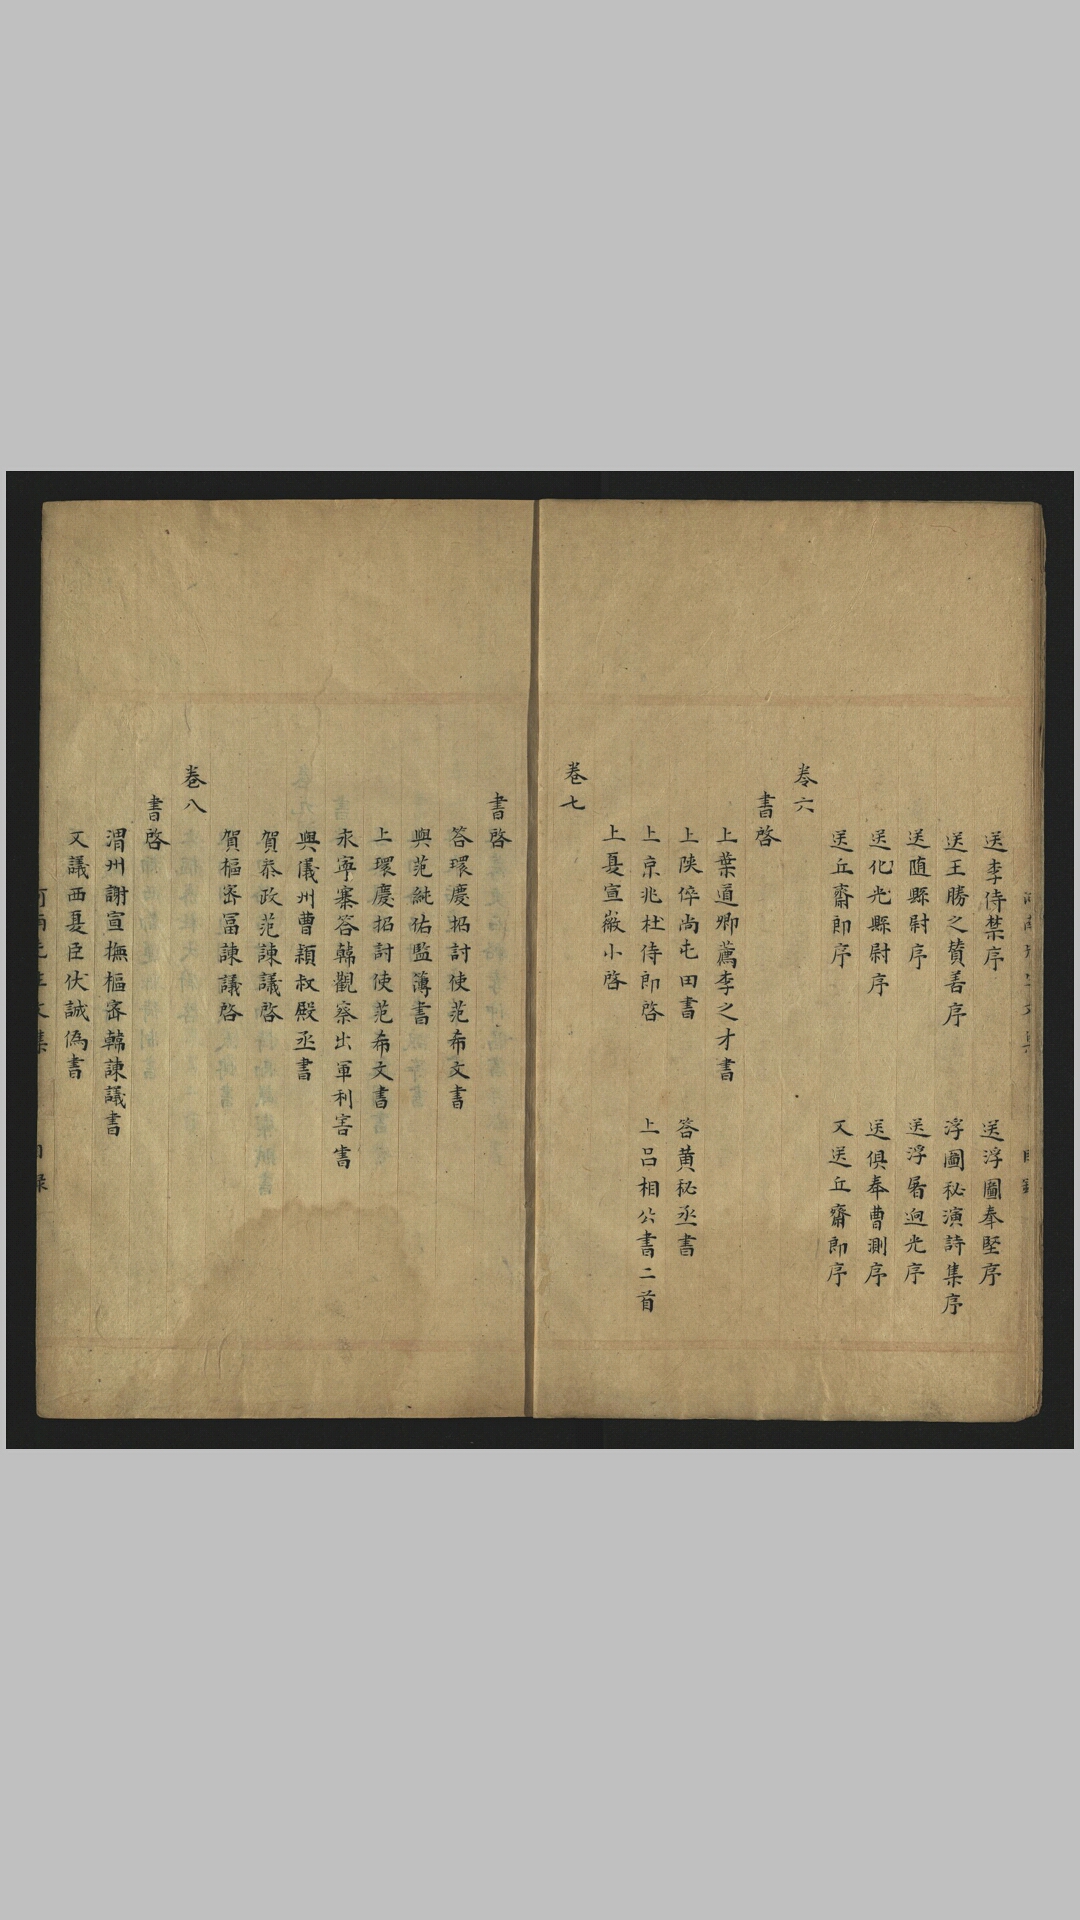 送李侍禁序　送浮圖奉堅序
送王勝之贊善序　浮圖秘演詩集序
送隨縣尉序　送浮屠迥光序
送化光縣尉序　送俱奉曹測序
送丘齋郎序　又送丘齋郎序
卷六
書啓
上葉道卿薦李之才書
上陝倅尚屯田書　答黃秘丞書
上京兆杜侍郎啓　上呂相公書二首
上夏宣徽小啓
卷七
書啓
答環慶招討使范希文書
與范純佑監簿書
上環慶招討使范希文書
永寧寨答韓觀察出軍利害書
與儀州曹穎叔殿丞書
賀叅政范諫議啓
賀樞密富諫議啓
卷八
書啓
渭州謝宣撫樞密韓諫議書
又議西夏臣伏誠偽書